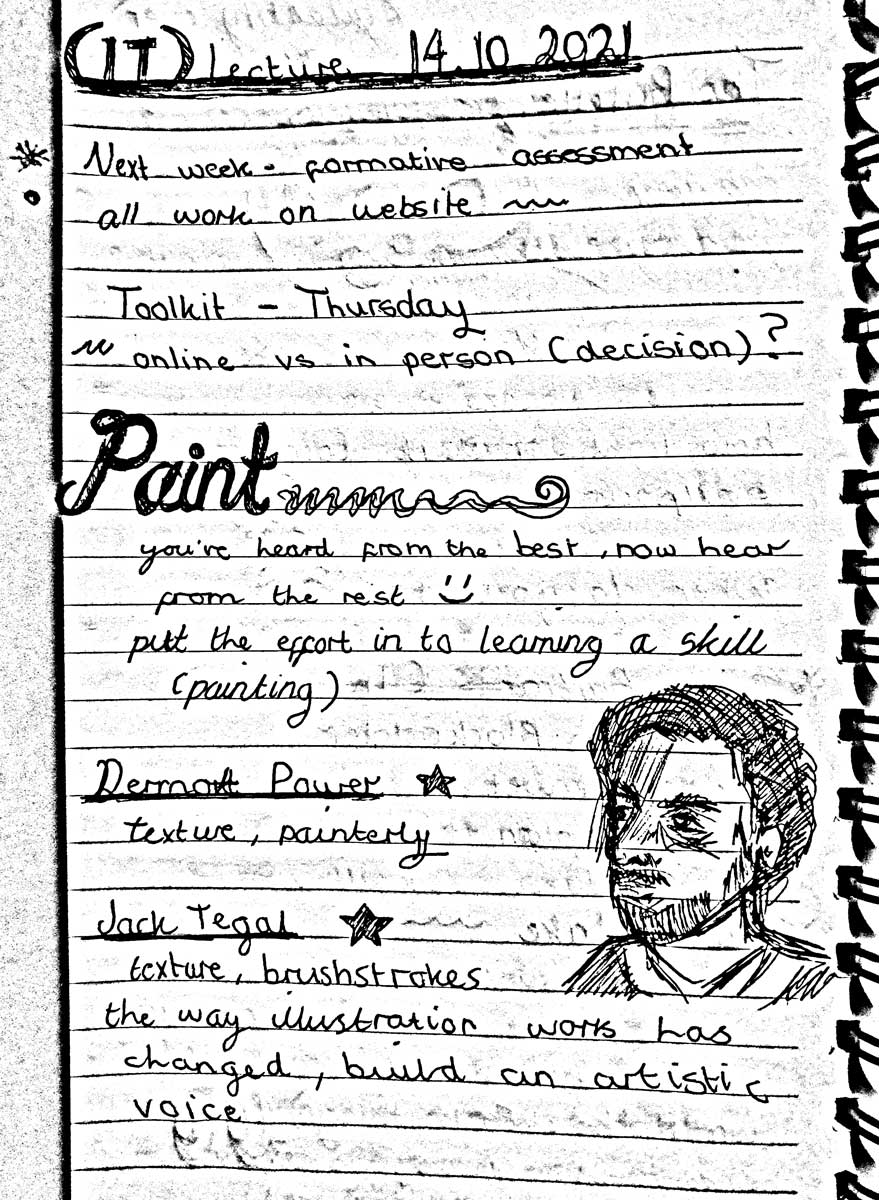 (IT) Lecture 14.10 2021
Next week - formative assessment
all work on website
Toolkit - Thursday
online vs in person (decision)?
Paint
you've heard from the best, now hear
from the rest
putt the effort in to learning a skill
(painting)
Dermott Power
texture, painterly
Jack Tegal
texture, brushstrokes
the way illustration works has
changed, build an artistic
voice